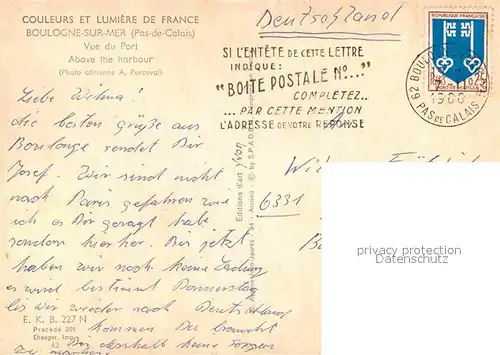 COULEURS ET LUMIÈRE DE FRANCE
BOULOGNE-SUR-MER (Pas-de-Calais)
Vue du Port
Above the harbour
(Photo aérienne A. Perceval)
Deutschland
SI L'ENTÊTE DE CETTE LETTRE
INDIQUE:
"BOITE POSTALE No..."
COMPLETEZ..
...PAR CETTE MENTION
L'ADRESSE DE VOTRE REPONSE
REPUBLIQUE FRANÇAISE
0,25
MONT-DE-MARSAN
62 BOULOGNE
PAS DE CALAIS
1966
Liebe Wilma!
die besten Grüße aus
Boulogne sendet Dir
Josef. Wir sind nicht
nach Paris gefahren wie
ich es Dir gesagt habe
sondern hierher. Bis jetzt
haben wir noch keine Ladung
es wird bestimmt Donnerstag
bis wir wieder nach Deutschland
kommen. Du brauchst
Dir deshalb keine Sorgen
zu machen
6331
Editions d'art Yvon
E. K. B. 227 N
Procédé 301
Draeger, Imp.
62
privacy protection
ansichtskarten-center.de